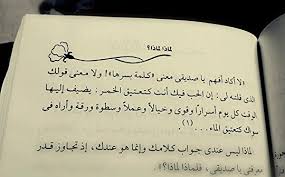 لماذا لماذا؟
«لا أكاد أفهم يا صديقى معنى «كلمة بسرها»! ولا معنى قولك
الذى قلته لى: إن الحب فيك أنت كتعتيق الخمر: يضيف إليها
الوقت كل يوم أسرارًا وقوى وخيالاً وعملاً وسطوة ورقة وأراه فى
سواك كتعتيق الماء... (١)
لماذا ليس عندى جواب كلامك وإنما هو عندك، إذ تجاوز قدر
معرفتى يا صديقى، فلماذا لماذا؟